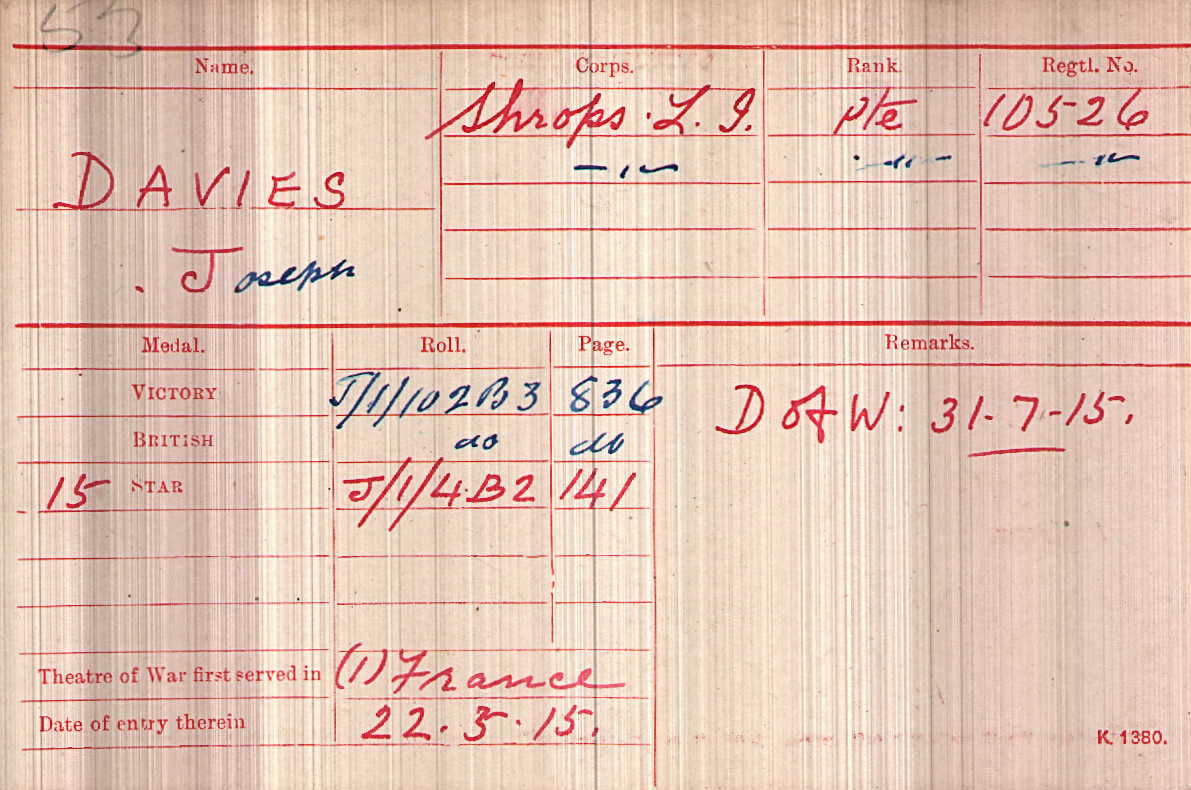 53
Name. Corps. Rank. Regtl. No.
Shrops. L. I. Pte 10526
DAVIES -"- -"- -"-
. Joseph
Medal. Roll. Page. Remarks.
VICTORY J/1/102B3 836
BRITISH do do
D of W: 31-7-15.
15 STAR J/1/4.B2 141
Theatre of War first served in (1) France
Date of entry therein 22.5.15.
K. 1380.